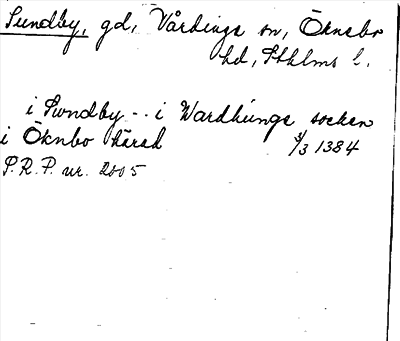 Sundby, gd, Vårdinge sn, Öknebo
hd, Sthlms l.
i Swndby -- i Wardhunge socken
i Öknbo härad 8/3 1384
S.R.P. nr. 2005